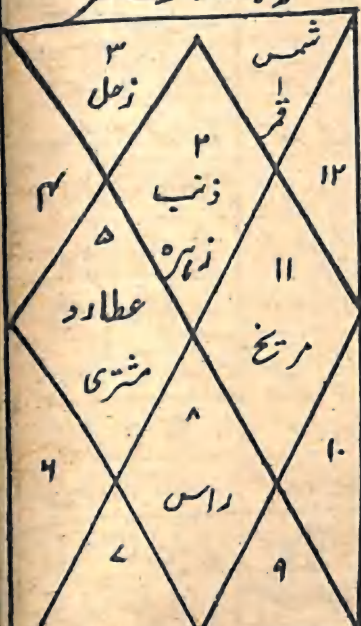 شمس
۳
زحل
۱
قمر
۲
ذنب
زہرہ
۱۲
۴
۵
عطارد
مشتری
۱۱
مریخ
۸
راس
۱۰
۶
۷
۹